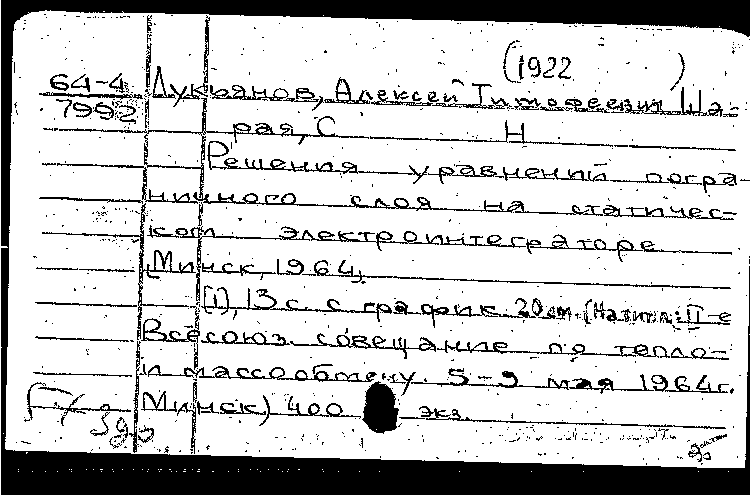 (1922 )
64-4 Лукьянов, Алексей Тимофеевич Ша-
7992
рая, С Н
Решения уравнений погра-
ничного слоя на статичес-
ком электроинтеграторе
[Минск, 1964].
[1], 13 с. с график. 20 см. (На тит. л.: II-е
Всесоюз. совещание по тепло-
и массообмену. 5-9 мая 1964г.
Минск) 400 экз.